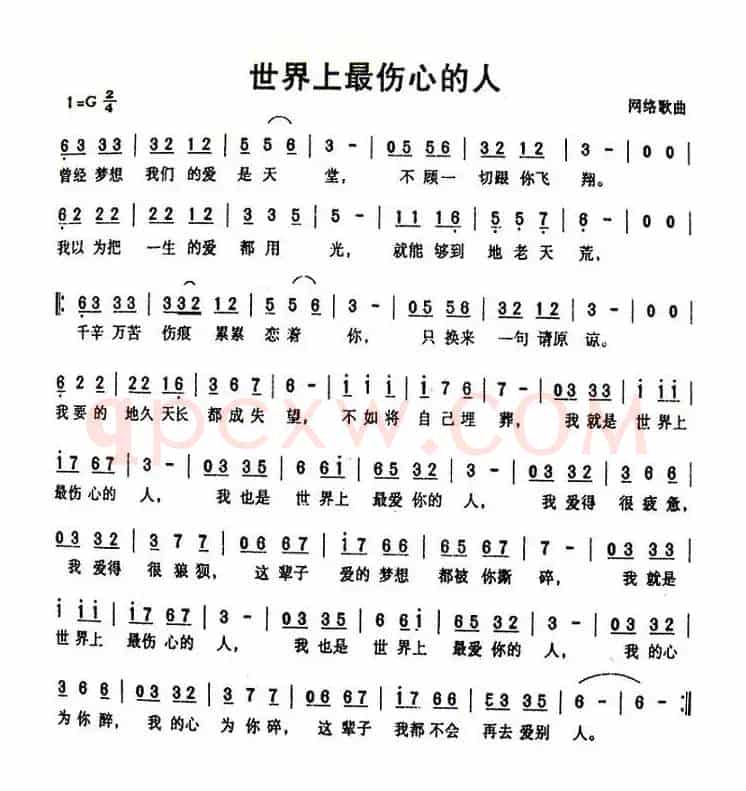 世界上最伤心的人
1=G 2/4
网络歌曲
63 33 | 32 12 | 5 5 6 | 3 - | 05 56 | 32 12 | 3 - | 0 0 |
曾经 梦想 我们 的爱 是天 堂， 不 顾一 切跟 你飞 翔。
62 22 | 22 12 | 3 3 5 | 5 - | 11 16 | 5 5 7 | 6 - | 0 0 |
我以 为把 一生 的爱 都 用 光， 就能 够到 地老天 荒，
‖: 63 33 | 332 12 | 5 5 6 | 3 - | 05 56 | 32 12 | 3 - | 0 0 |
千辛 万苦 伤痕 累累 恋着 你， 只 换来 一句 请原 谅。
6 2 2 | 22 16 | 3 6 7 | 6 - | i i i | i 7 6 | 7 - | 03 33 | i ii |
我 要的 地久 天长 都 成失 望， 不 如将 自 己埋 葬， 我 就是 世 界上
i7 67 | 3 - | 03 35 | 6 6i | 65 32 | 3 - | 03 32 | 3 6 6 |
最伤 心的 人， 我 也是 世 界上 最爱 你的 人， 我 爱得 很 疲惫，
03 32 | 3 7 7 | 06 67 | i7 66 | 65 67 | 7 - | 03 33 |
我 爱得 很 狼狈， 这辈子 爱的 梦想 都被 你撕 碎， 我 就是
i ii | i7 67 | 3 - | 03 35 | 6 6i | 65 32 | 3 - | 03 32 |
世 界上 最伤 心的 人， 我 也是 世 界上 最爱 你的 人， 我 的心
3 6 6 | 03 32 | 3 7 7 | 06 67 | i7 66 | 33 35 | 6 - | 6 - :‖
为 你醉， 我 的心 为 你碎， 这辈子 我都 不会 再去 爱别 人。
qpcxw.COM